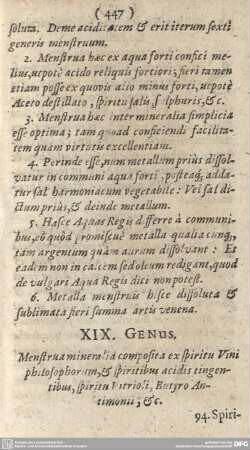 (447)
soluta. Deme aciditatem & erit iterum sexti
generis menstruum.
2. Menstrua hæc ex aqua forti confici me-
lius, utpotè acido reliquis fortiori; fieri tamen
etiam posse ex quovis alio minus forti, utpotè
Aceto destillato, spiritu salis, sulphuris, &c.
3. Menstrua hæc inter mineralia simplicia
esse optima; tam quoad conficiendi facilita-
tem quam virtutis excellentiam.
4. Perinde esse, num metallum priùs dissol-
vatur in communi aqua forti, posteáq; adda-
tur sal harmoniacum vegetabile: Vel sal di-
ctum priùs, & deinde metallum.
5. Hasce Aquas Regis differre à communi-
bus, eò quòd promiscuè metalla qualiacunq;
tam argentum quàm aurum dissolvant: Et
eadem non in calcem sed oleum redigant, quod
de vulgari Aqua Regis dici non potest.
6. Metalla menstruis hisce dissoluta &
sublimata fieri summa artis venena.
XIX. GENUS.
Menstrua mineralia composita ex spiritu Vini
philosophorum, & spiritibus acidis tingen-
tibus, spiritu Vitrioli, Butyro An-
timonii, &c.
94. Spiri-